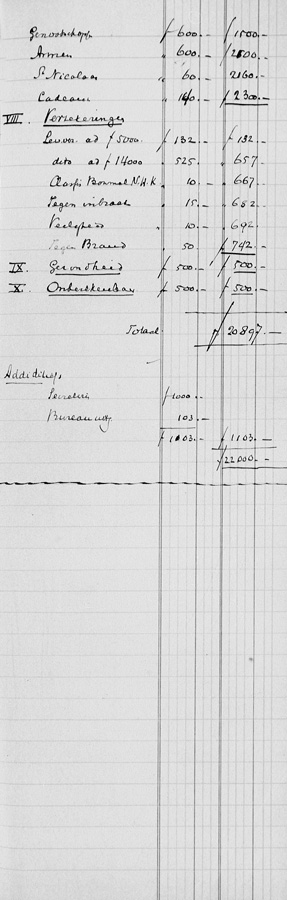 Genootschapp f 600.- f 1500.-
Armen " 600.- " 2100.-
St Nicolaas " 60.- 2160.-
Cadeaux " 140.- f 2300.-
VIII. Verzekeringen
Levensv. ad f 5000. f 132.- f 132.-
dito ad f 14000 " 525. " 657.-
Bonmal N.H.K " 10.- " 667.-
Tegen inbraak " 15.- " 682.-
" 10.- " 692.-
Tegen Brand " 50 f 742.-
IX. Gezondheid f 500.- f 500.-
X. f 500.- f 500.-
Totaal f 20897.-
f 1000.-
Bureau 103.-
f 1103.- f 1103.-
f 22000.-